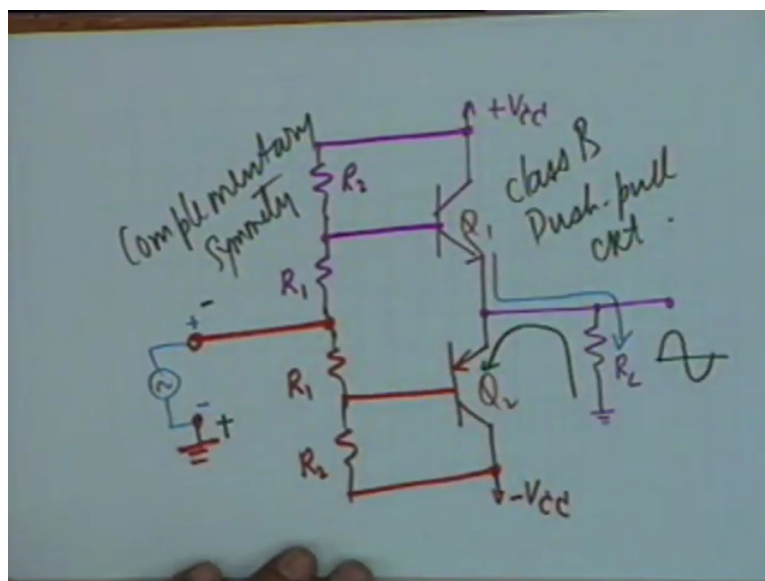 Complementary
Symmety
+Vcc
R2
class B
Push-pull
ckt.
Q1
R1
-
+
R1
Q2
RL
-
+
R2
-Vcc